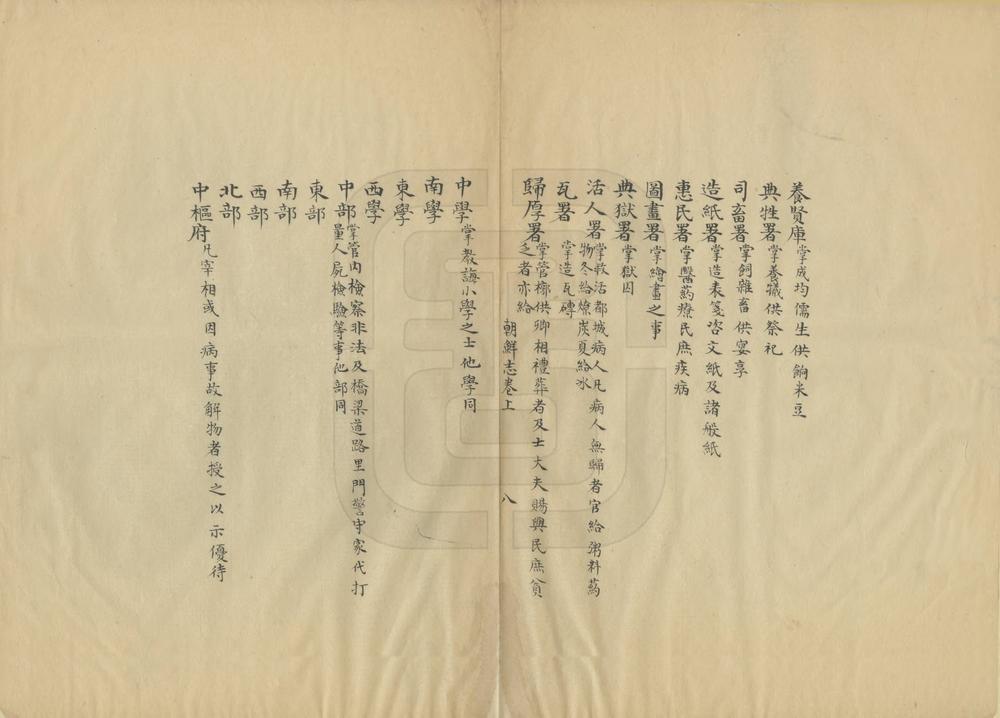 養賢庫掌成均儒生供餉米豆
典牲署掌養犧供祭祀
司畜署掌飼雜畜供宴享
造紙署掌造表箋咨文紙及諸般紙
惠民署掌醫藥療民庶疾病
圖畫署掌繪畫之事
典獄署掌獄囚
活人署掌救活都城病人凡病人無歸者官給粥料藥
物冬給燎炭夏給冰
瓦署掌造瓦磚
歸厚署掌管槨供卿相禮葬者及士大夫賜與民庶貧
乏者亦給
朝鮮志卷上 八
中學掌教誨小學之士他學同
南學
東學
西學
中部掌管內檢察非法及橋梁道路里門警守家代打
量人屍檢驗等事他部同
東部
南部
西部
北部
中樞府凡宰相或因病事故解物者授之以示優待